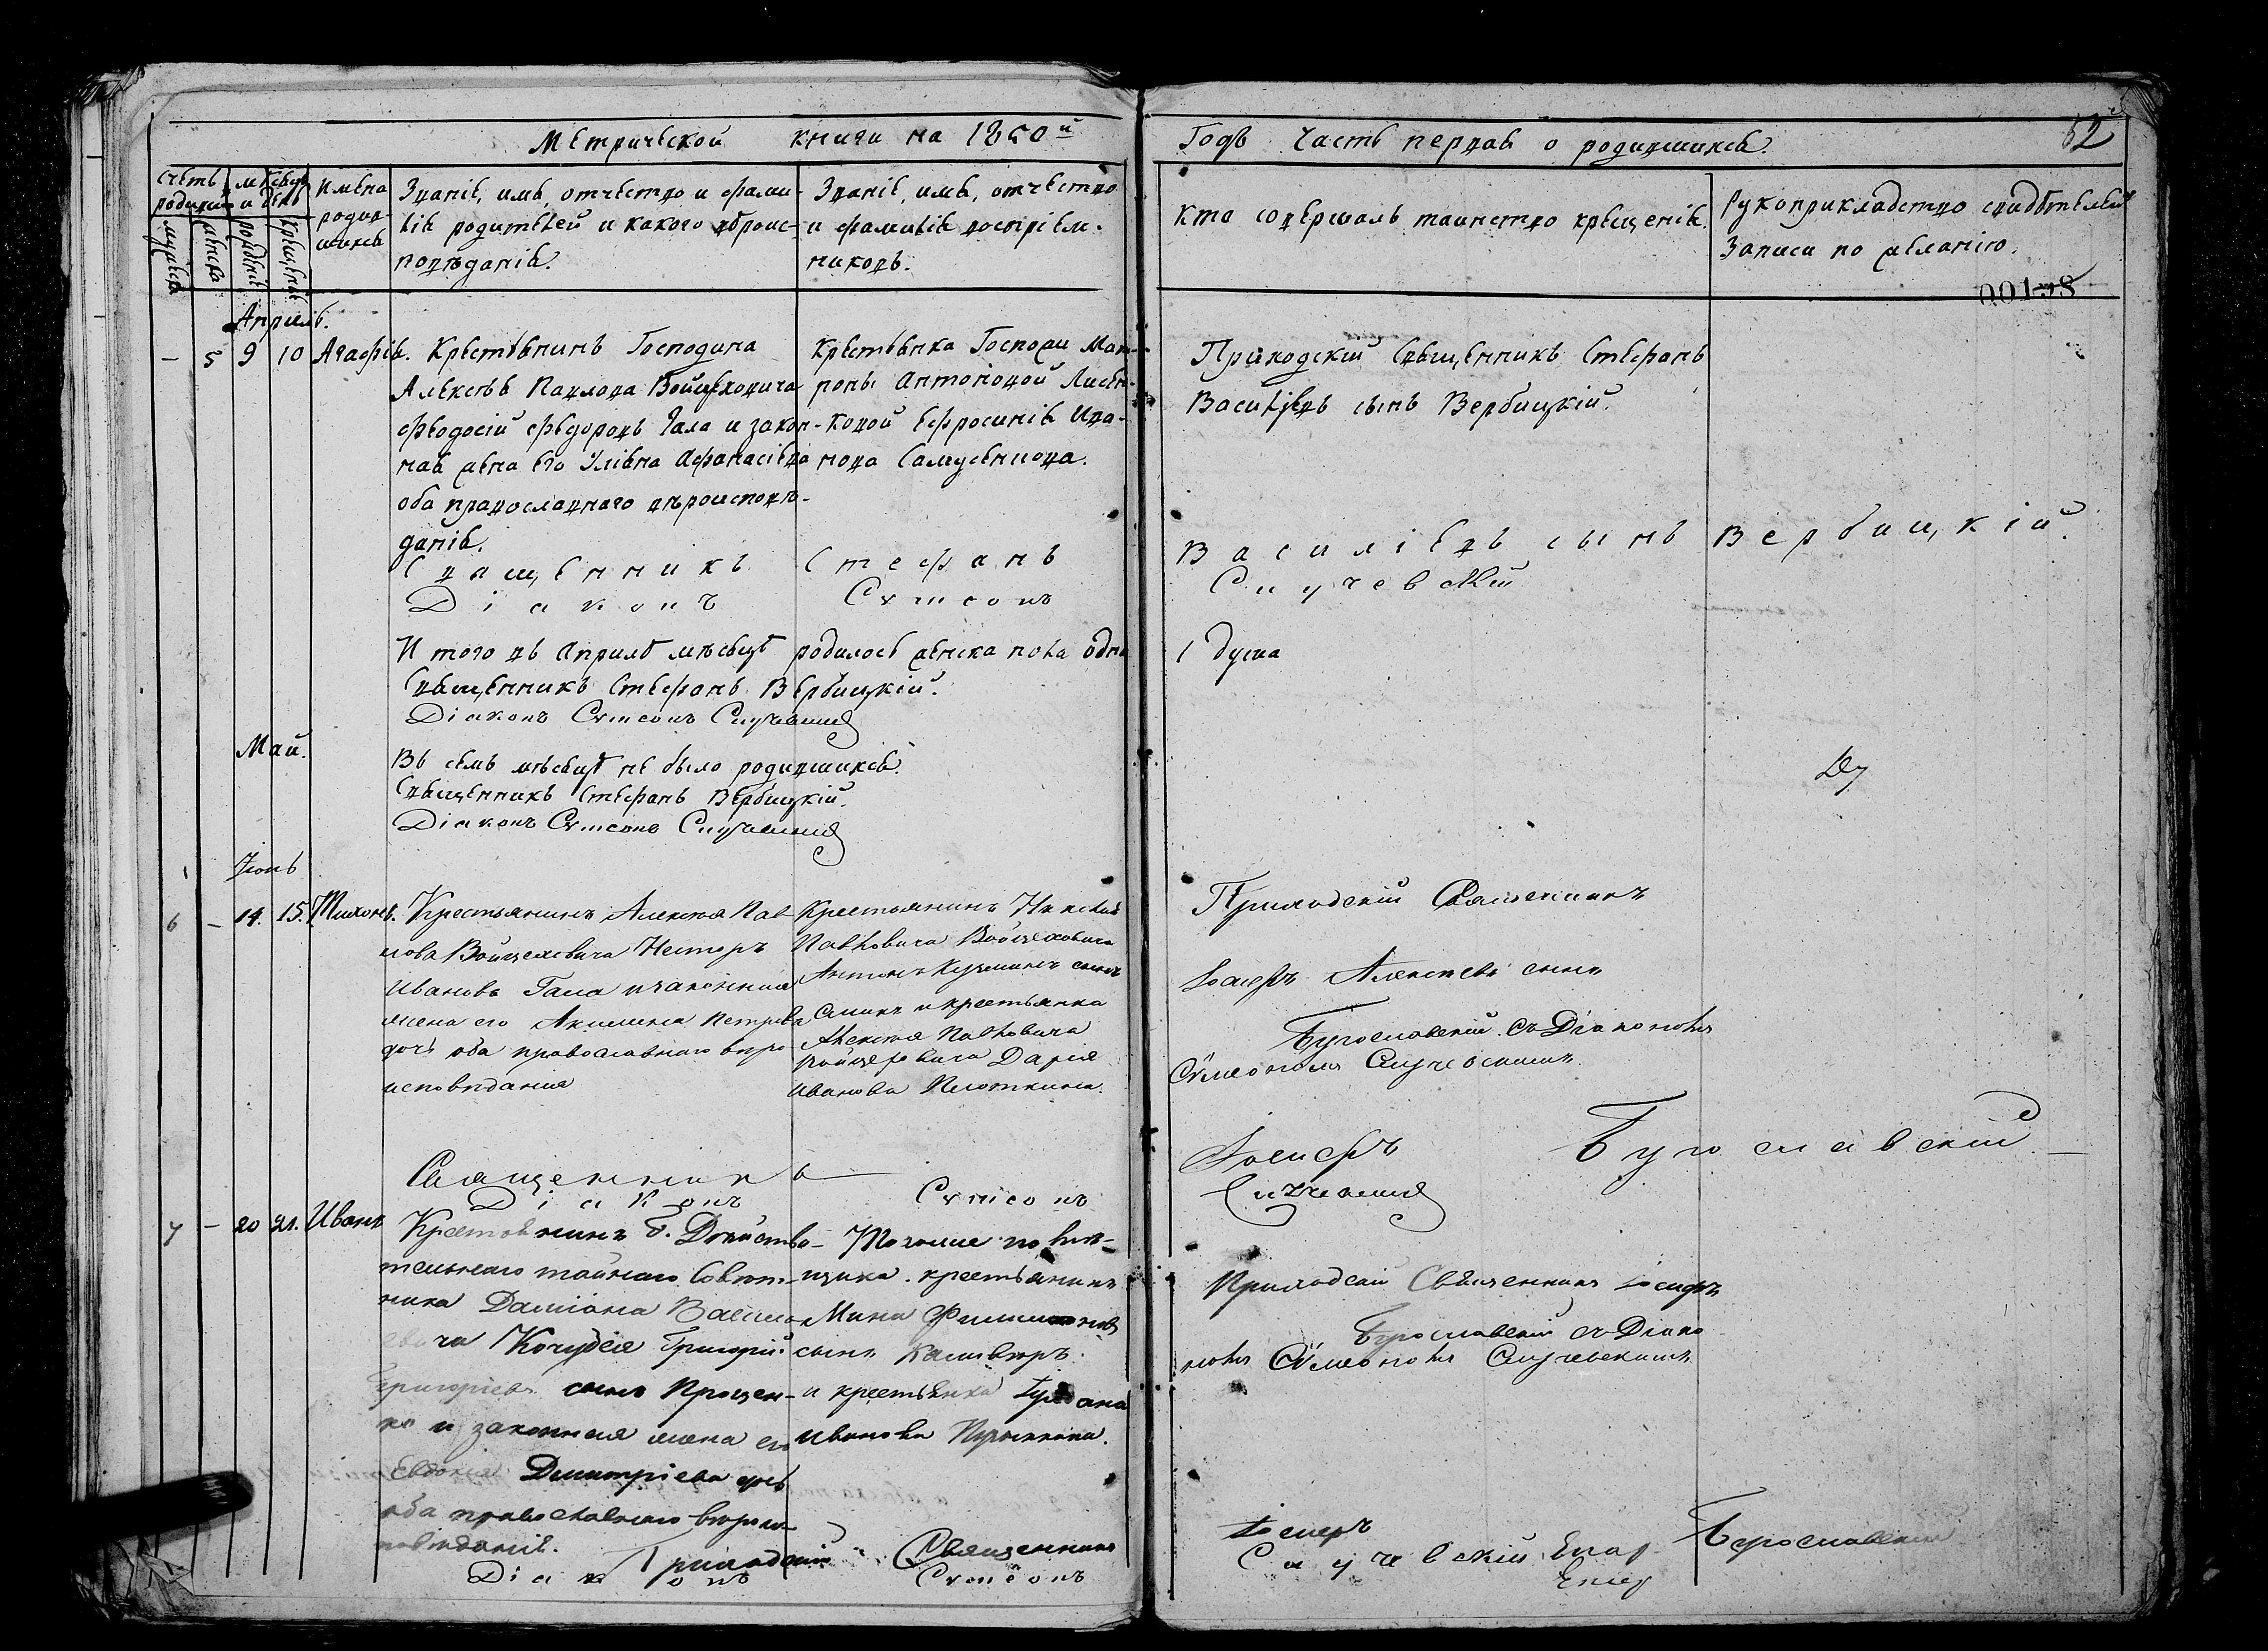 Метрической книги на 1850й
Годъ Часть первая о родившихся.
52
Счетъ родившихся
Мѣсяцъ и день
Имена родившихся
мужеска
женска
рожденія
крещенія
Званіе, имя, отчество и фамилія родителей и какого вѣроисповѣданія.
Званіе, имя, отчество и фамилія воспріемниковъ.
Кто совершалъ таинство крещенія.
Рукоприкладство свидѣтелей
Записи по желанію.
00158
Апрель.
– 5 9 10 Агафія.
Крестьянинъ Господина
Алексѣя Павлова Войцеховича
Феодосій Федоровъ Гала и закон-
ная жена его Уліяна Афанасіева
оба православнаго вѣроисповѣ-
данія.
Крестьянка Госпожи Мат-
роны Антоновой Лисен-
ковой Ефросинія Ива-
нова Самусенкова.
Приходскій Священникъ Стефанъ
Василіевъ сынъ Вербицкій.
Священникъ Стефанъ Василіевъ сынъ Вербицкій.
Діаконъ Сѵмеонъ Случевскій
И того въ Априлѣ мѣсяцѣ родилось женска пола одна 1 душа
Священникъ Стефанъ Вербицкій.
Діаконъ Сѵмеонъ Случевскій
Май.
Въ семъ мѣсяцѣ не было родившихся.
Священникъ Стефанъ Вербицкій.
Діаконъ Сѵмеонъ Случевскій
Іюнь
6 – 14. 15. Тихонъ.
Крестьянинъ Алексѣя Пав-
лова Войцеховича Несторъ
Ивановъ Гала и законная
жена его Акилина Петрова
дочь оба православнаго вѣро
исповѣданія
Крестьянинъ Алексѣя
Павловича Войцеховича
Антонъ Кузминъ сынъ
и крестьянка
Алексѣя Павловича
Войцеховича Дарія
Иванова Плоткина.
Приходскій Священникъ
Іосифъ Алексѣевъ сынъ
Бугославскій съ Діакономъ
Сѵмеономъ Случевскимъ.
Священникъ Іосифъ Бугославскій
Діаконъ Сѵмеонъ Случевскій
7 – 20 21. Иванъ
Крестьянинъ Г. Дѣйстви-
тельнаго тайнаго Совѣт-
ника Даміана Василі-
евича Кочубея Григорій
Григоріевъ сынъ Процен-
ко и законная жена его
Евдокія Димитріева дочь
оба православнаго вѣроис-
повѣданія.
Тогоже помѣ-
щика крестьянинъ
Мина Филимоновъ
сынъ
и крестьянка
Иванова
Приходскій Священникъ Іосифъ
Бугославскій съ Діако
номъ Сѵмеономъ Случевскимъ
Приходскій Священникъ Іосифъ Бугославскій
Діаконъ Сѵмеонъ Случевскій